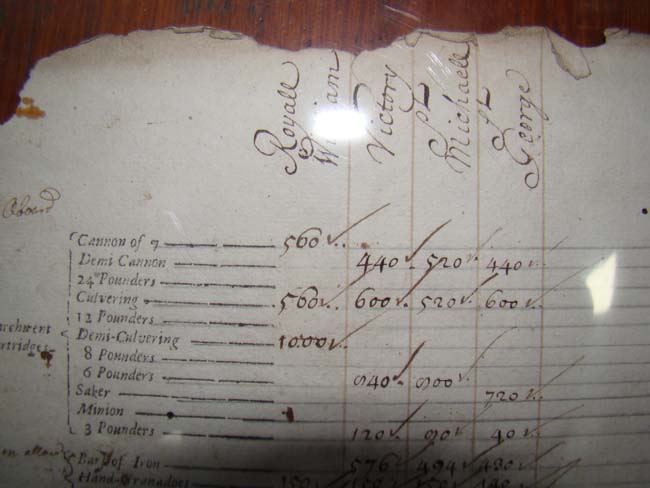 Royall William Victory St Michaell St George
Aboard
Cannon of 7 560
Demi Cannon 440 520 440
24 Pounders
Culvering 560 600 520 600
12 Pounders
Demi-Culvering 1000
8 Pounders
6 Pounders 940 900
Saker 720
Minion
3 Pounders 120 90 40
Bars of Iron 576 494 480
Hand-Granadoes 150